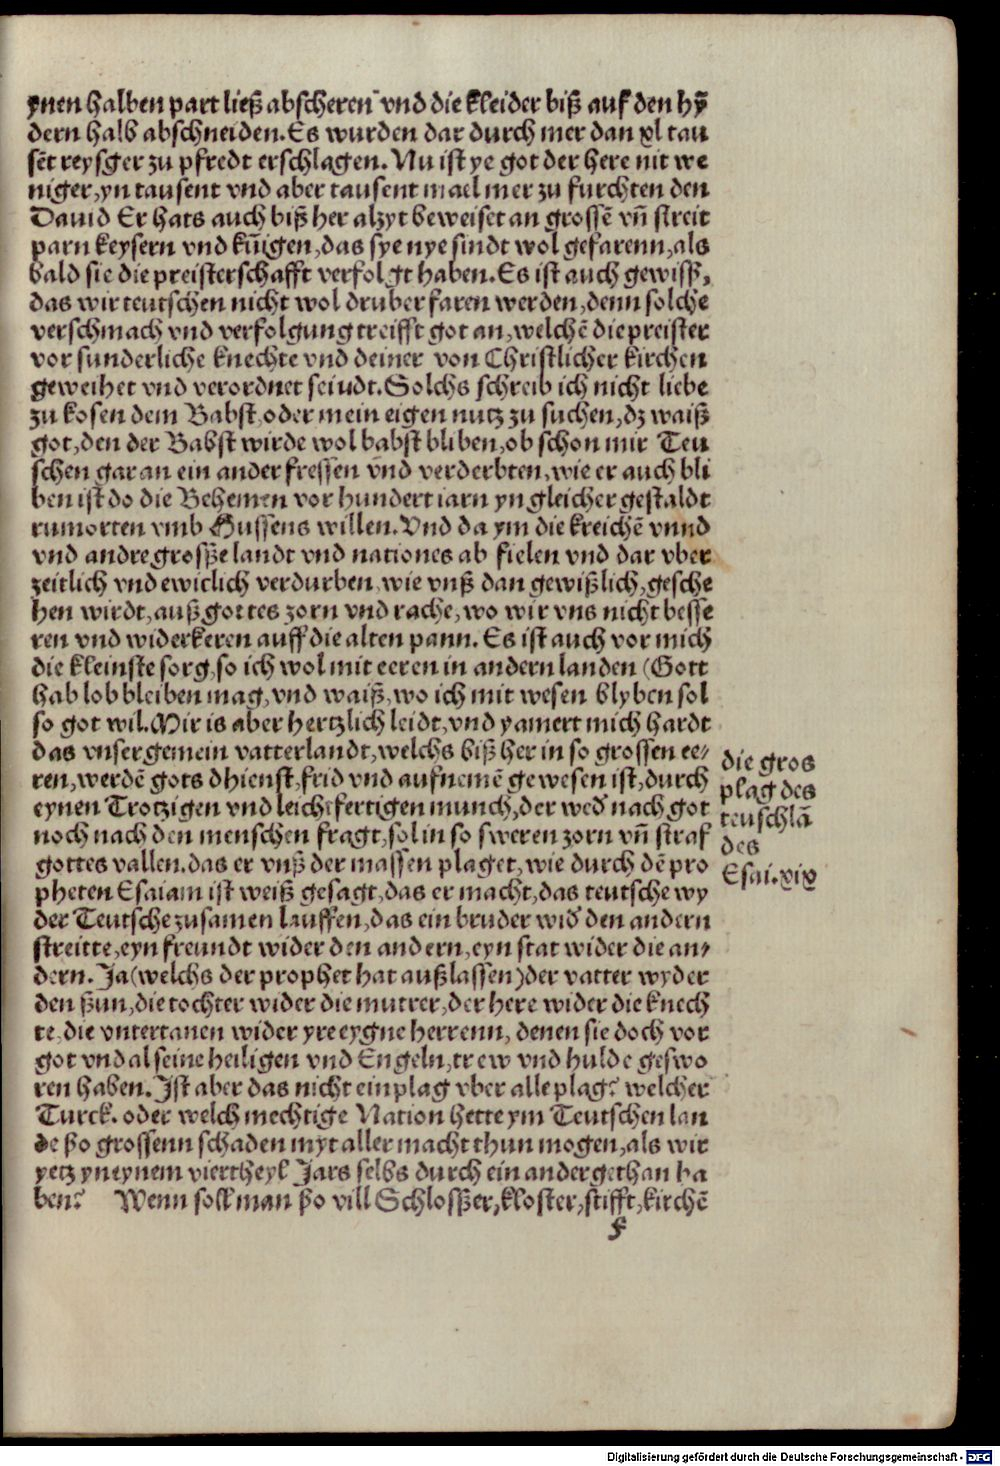 ynen halben part ließ abscheren vnd die kleider biß auf den hỹ
dern halb abschneiden. Es wurden dar durch mer dan xl tau
sẽt reysger zu pfredt erschlagen. Nu ist ye got der here nit we
niger, yn tausent vnd aber tausent mael mer zu furchten den
Dauid Er hats auch biß her alzyt beweiset an grossẽ vñ streit
parn keysern vnd kũigen, das sye nye sindt wol gefarenn, als
bald sie die preisterschafft verfolgt haben. Es ist auch gewiß,
das wir teutschen nicht wol druber faren werden, denn solche
verschmach vnd verfolgung treifft got an, welchẽ die preister
vor sunderliche knechte vnd deiner von Christlicher kirchen
geweihet vnd verordnet seiudt. Solchs schreib ich nicht liebe
zu kosen dem Babst, oder mein eigen nutz zu suchen, dz waiß
got, den der Babst wirde wol babst bliben, ob schon mir Teu
schen gar an ein ander fressen vnd verderbten, wie er auch bli
ben ist do die Behemen vor hundert iarn yn gleicher gestaldt
rumorten vmb Hussens willen. Vnd da ym die kreichẽ vnnd
vnd andre grosße landt vnd nationes ab fielen vnd dar vber
zeitlich vnd ewiclich verdurben, wie vnß dan gewißlich, gesche
hen wirdt, auß gottes zorn vnd rache, wo wir vns nicht besse
ren vnd widerkeren auff die alten pann. Es ist auch vor mich
die kleinste sorg, so ich wol mit eeren in andern landen (Gott
hab lob bleiben mag, vnd waiß, wo ich mit wesen blyben sol
so got wil. Mir is aber hertzlich leidt, vnd yamert mich hardt
das vnser gemein vatterlandt, welchs biß her in so grossen ee⸗
ren, werdẽ gots dhienst, frid vnd aufnemẽ gewesen ist, durch
eynen Trotzigen vnd leichtfertigen munch, der wed' nach got
noch nach den menschen fragt, sol in so sweren zorn vñ straf
gottes vallen. das er vnß der massen plaget, wie durch dẽ pro
pheten Esaiam ist weiß gesagt, das er macht, das teutsche wy
der Teutsche zusamen lauffen, das ein bruder wid' den andern
streitte, eyn freundt wider den andern, eyn stat wider die an⸗
dern. Ja (welchs der prophet hat außlassen) der vatter wyder
den ßun, die tochter wider die mutter, der here wider die knech
te, die vntertanen wider yre eygne herrenn, denen sie doch vor
got vnd al seine heiligen vnd Engeln, trew vnd hulde geswo
ren haben. Ist aber das nicht ein plag vber alle plag? welcher
Turck. oder welch mechtige Nation hette ym Teutschen lan
de ßo grossenn schaden myt aller macht thun mogen, als wir
yetz yn eynem viertheyl Jars selbs durch ein ander gethan ha
ben? Wenn soll man ßo vill Schlosßer, kloster, stifft, kirchẽ
f
die gros
plag des
teuschlã
des
Esai. xix
Digitalisierung gefördert durch die Deutsche Forschungsgemeinschaft - DFG